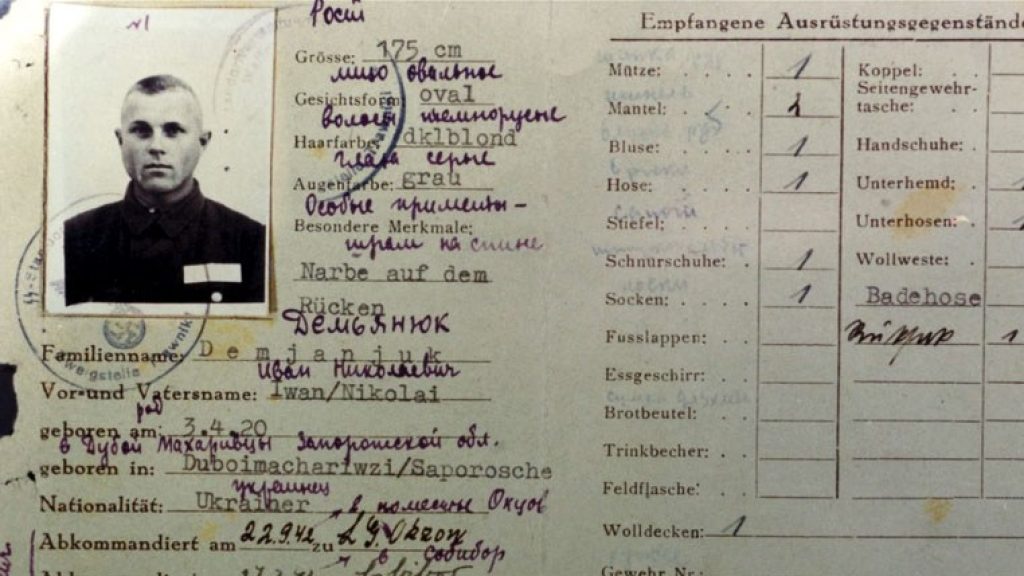 №1
Рост
Grösse: 175 cm
лицо овальное
Gesichtsform: oval
волосы темнорусые
Haarfarbe: dklblond
глаза серые
Augenfarbe: grau
Особые приметы –
Besondere Merkmale:
шрам на спине
Narbe auf dem
Rücken
Демьянюк
Familienname: Demjanjuk
Иван Николаевич
Vor-und Vatersname: Iwan/Nikolai
род
geboren am: 3.4.20
в Дубой Махаривцы Запорожской обл.
geboren in: Duboimachariwzi/Saporosche
украинец
Nationalität: Ukrainer
в поместье Окцов
Abkommandiert am 22.9.42 zu L.G. Okzow
в Собибор
Empfangene Ausrüstungsgegenstände
Mütze: 1
Mantel: 1
Bluse: 1
Hose: 1
Stiefel:
Schnürschuhe: 1
Socken: 1
Fusslappen:
Essgeschirr:
Brotbeutel:
Trinkbecher:
Feldflasche:
Wolldecken: 1
Gewehr Nr.:
Koppel:
Seitengewehr-
tasche:
Handschuhe:
Unterhemd:
Unterhosen:
Wollweste:
Badehose
1